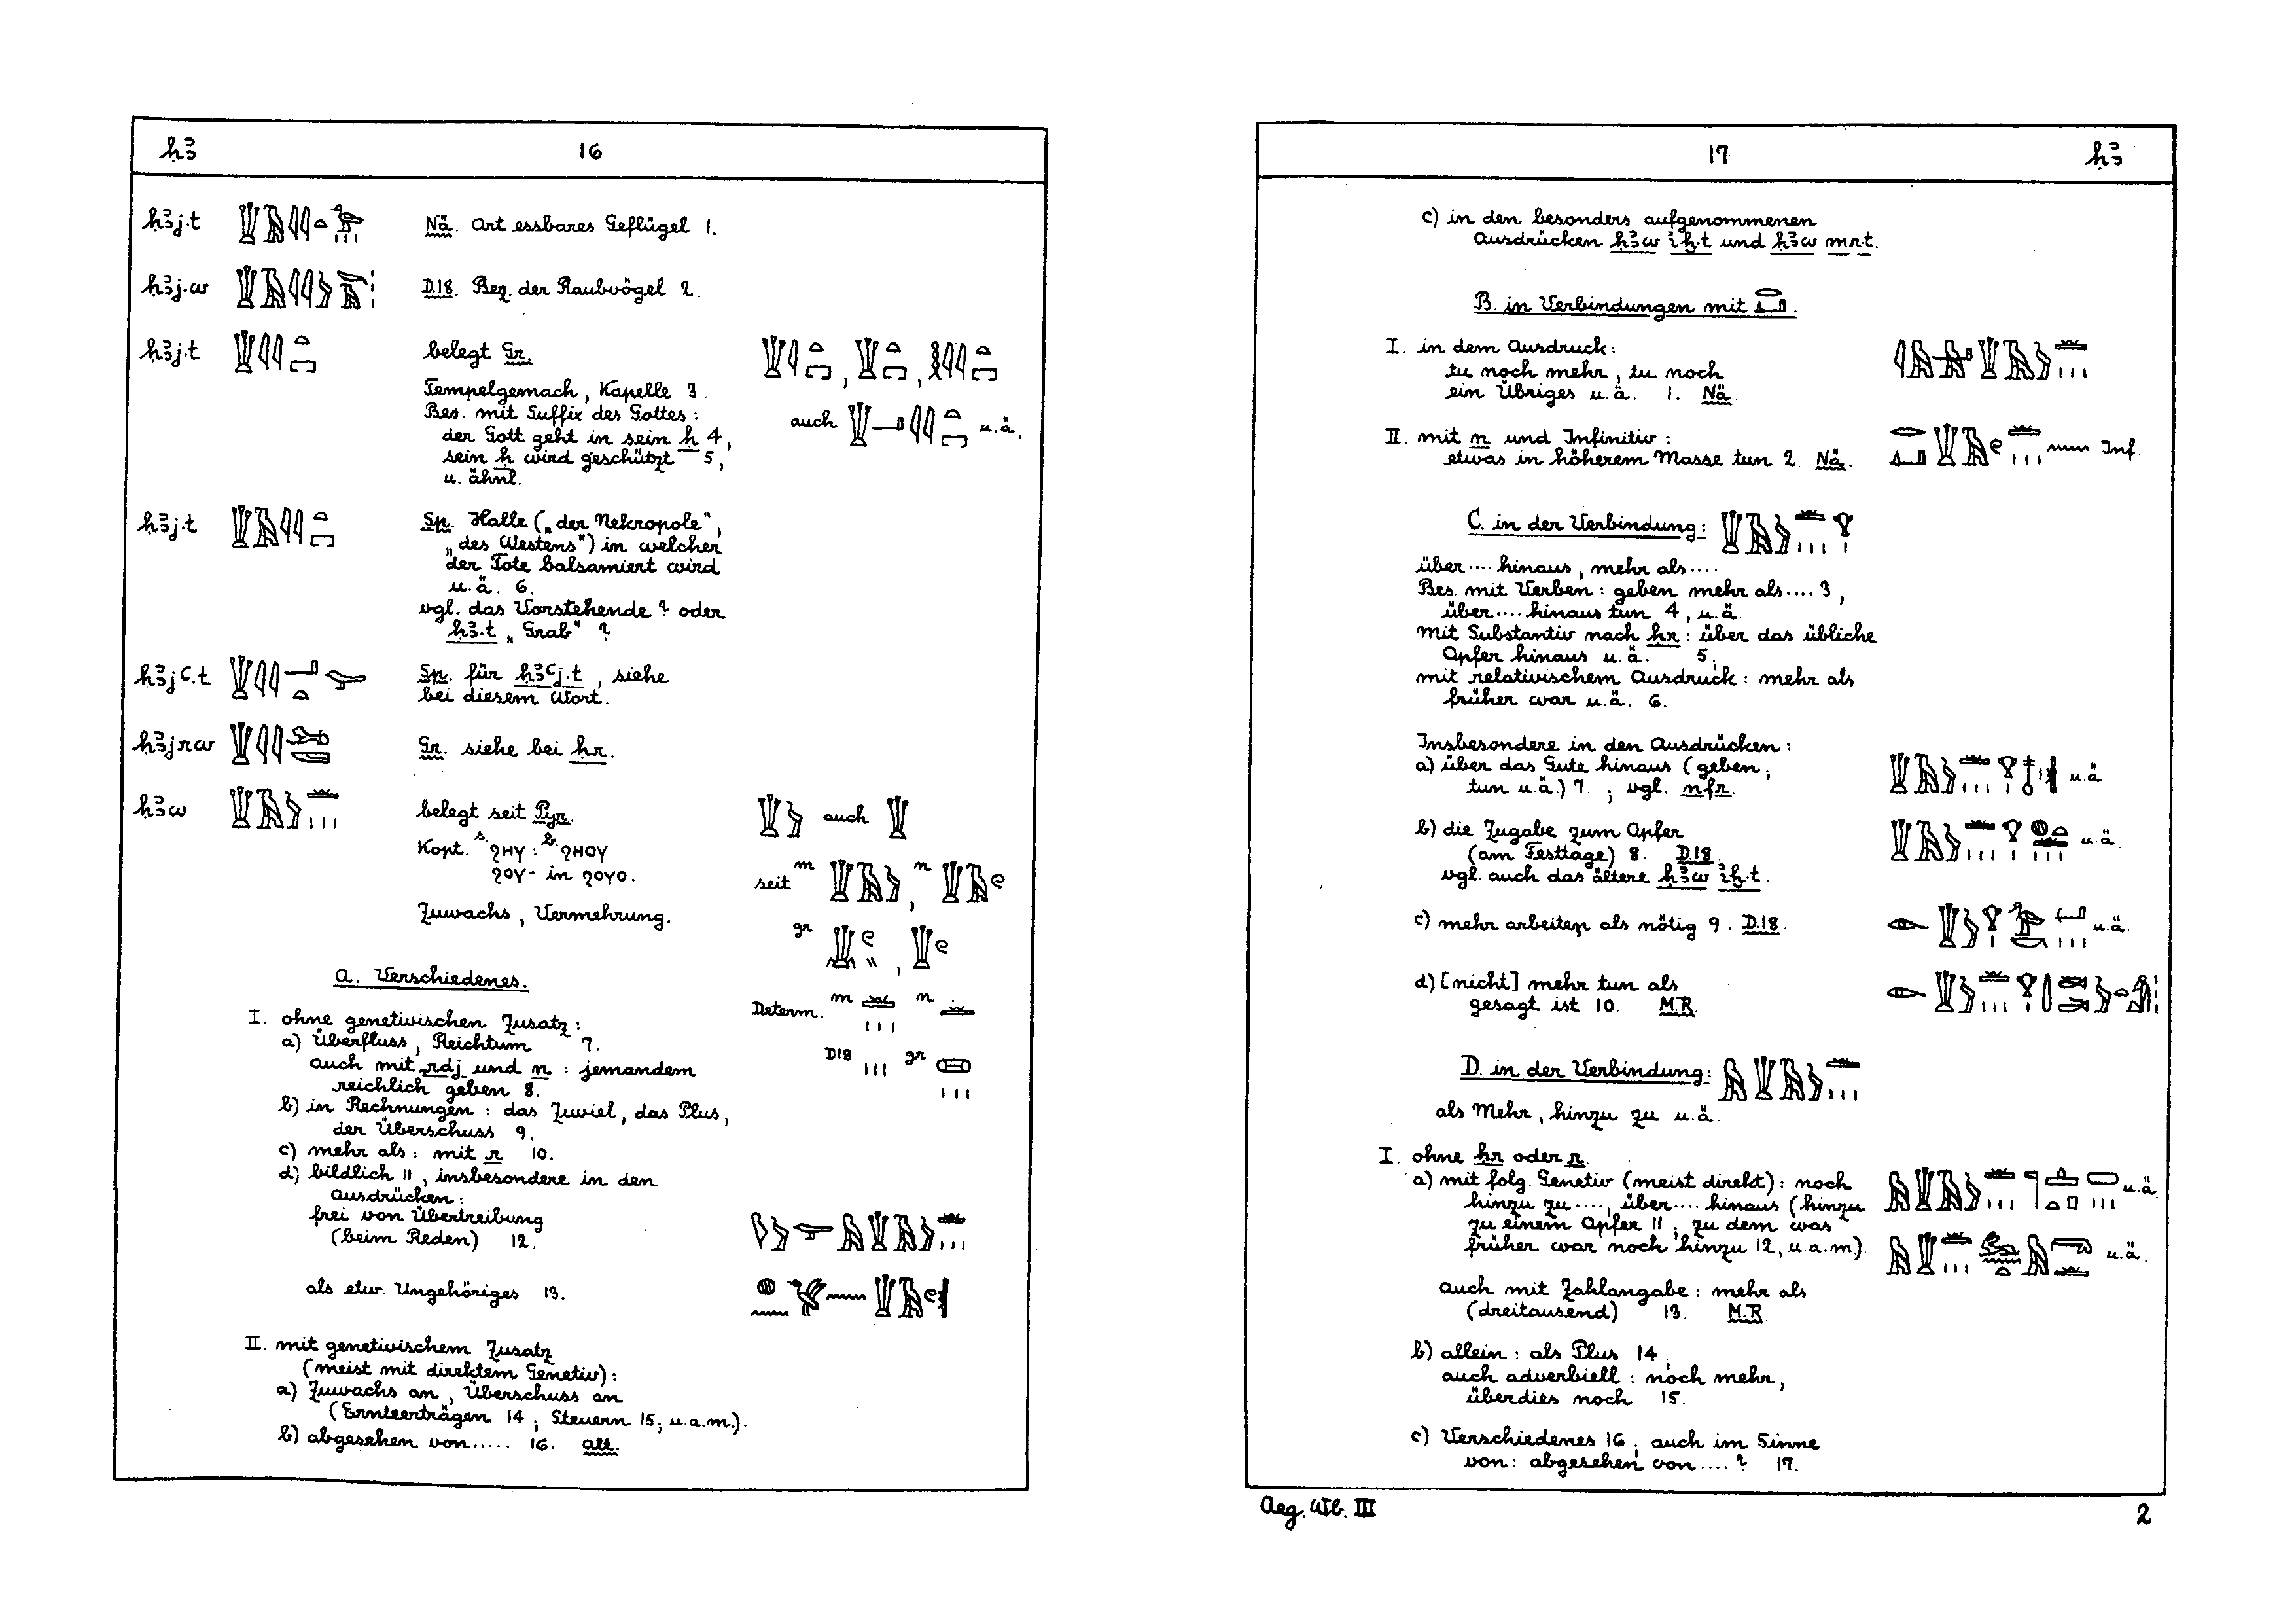 ḥꜣ 16
ḥꜣj.t Nä. Art essbares Geflügel 1.
ḥꜣj.w D.18. Bez. der Raubvögel 2.
ḥꜣj.t belegt Gr.
Tempelgemach, Kapelle 3.
Bes. mit Suffix des Gottes:
der Gott geht in sein ḥ 4, auch u.ä.
sein ḥ wird geschützt 5,
u. ähnl.
ḥꜣj.t Sp. Halle („der Nekropole",
„des Westens") in welcher
der Tote balsamiert wird
u.ä. 6.
vgl. das Vorstehende? oder
ḥꜣ.t „Grab" ?
ḥꜣjꜥ.t Sp. für ḥꜣꜥj.t, siehe
bei diesem Wort.
ḥꜣjrw Gr. siehe bei ḥr.
ḥꜣw belegt seit Pyr. auch
Kopt. s. ϩⲏⲩ : b. ϩⲏⲟⲩ
ϩⲟⲩ- in ϩⲟⲩⲟ. seit m , n
Zuwachs, Vermehrung.
gr ,
A. Verschiedenes.
Determ. m n
D18 gr
I. ohne genetivischen Zusatz:
a) Überfluss, Reichtum 7.
auch mit rdj und n : jemandem
reichlich geben 8.
b) in Rechnungen : das Zuviel, das Plus,
der Überschuss 9.
c) mehr als : mit r 10.
d) bildlich 11, insbesondere in den
Ausdrücken :
frei von Übertreibung
(beim Reden) 12.
als etw. Ungehöriges 13.
II. mit genetivischem Zusatz
(meist mit direktem Genetiv) :
a) Zuwachs an, Überschuss an
(Ernteerträgen 14 ; Steuern 15; u.a.m.).
b) abgesehen von..... 16. alt.
17 ḥꜣ
c) in den besonders aufgenommenen
Ausdrücken ḥꜣw ỉḫ.t und ḥꜣw mr.t.
B. in Verbindungen mit .
I. in dem Ausdruck:
tu noch mehr, tu noch
ein Übriges u.ä. 1. Nä.
II. mit n und Infinitiv :
etwas in höherem Masse tun 2. Nä. Inf.
C. in der Verbindung:
über.... hinaus, mehr als....
Bes. mit Verben : geben mehr als.... 3,
über.... hinaus tun 4, u.ä.
mit Substantiv nach ḥr : über das übliche
Opfer hinaus u.ä. 5.
mit relativischem Ausdruck : mehr als
früher war u.ä. 6.
Insbesondere in den Ausdrücken :
a) über das Gute hinaus (geben, u.ä
tun u.ä.) 7. ; vgl. nfr.
b) die Zugabe zum Opfer u.ä.
(am Festtage) 8. D.18.
vgl. auch das ältere ḥꜣw ỉḫ.t.
c) mehr arbeiten als nötig 9. D.18. u.ä.
d) [nicht] mehr tun als
gesagt ist 10. M.R.
D. in der Verbindung:
als Mehr, hinzu zu u.ä.
I. ohne ḥr oder r.
a) mit folg. Genetiv (meist direkt) : noch u.ä.
hinzu zu...., über.... hinaus (hinzu
zu einem Opfer 11 ; zu dem was
früher war noch hinzu 12, u.a.m). u.ä.
auch mit Zahlangabe : mehr als
(dreitausend) 13. M.R.
b) allein : als Plus 14 ;
auch adverbiell : noch mehr,
überdies noch 15.
c) Verschiedenes 16 ; auch im Sinne
von : abgesehen von.... ? 17.
Aeg. Wb. III 2